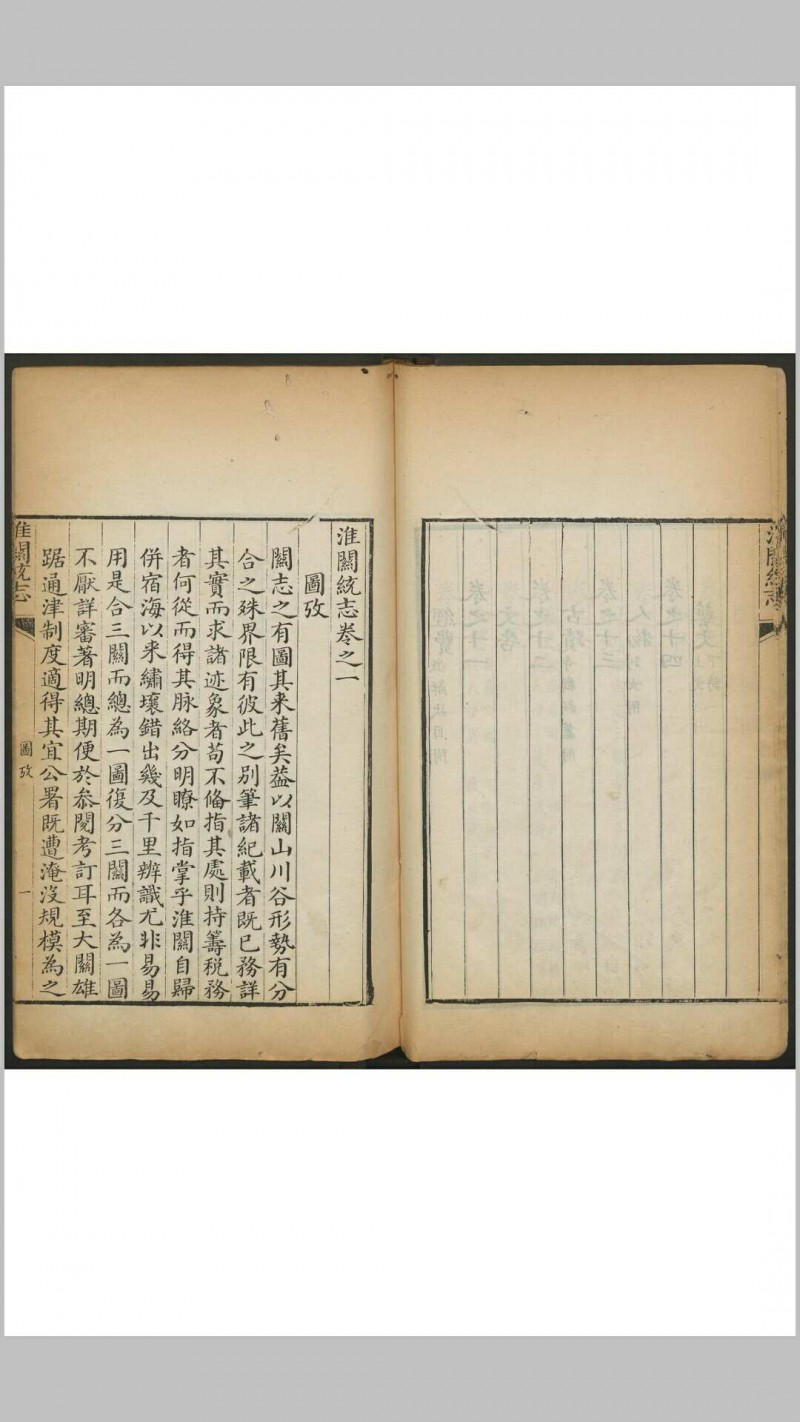 淮關統志
淮關統志卷之一
圖攷
關志之有圖其来舊矣葢以關山川谷形勢有分
合之殊界限有彼此之别筆諸紀載者既已務詳
其實而求諸迹象者苟不偹指其處則持籌税務
者何從而得其脉絡分明瞭如指掌乎淮關自歸
併宿海以来繡壤錯出幾及千里辨識尤非易易
用是合三關而總為一圖復分三關而各為一圖
不厭詳審著明總期便於叅閱考訂耳至大關雄
踞通津制度適得其宜公署既遭淹没規模為之
淮關統志
圖攷
一